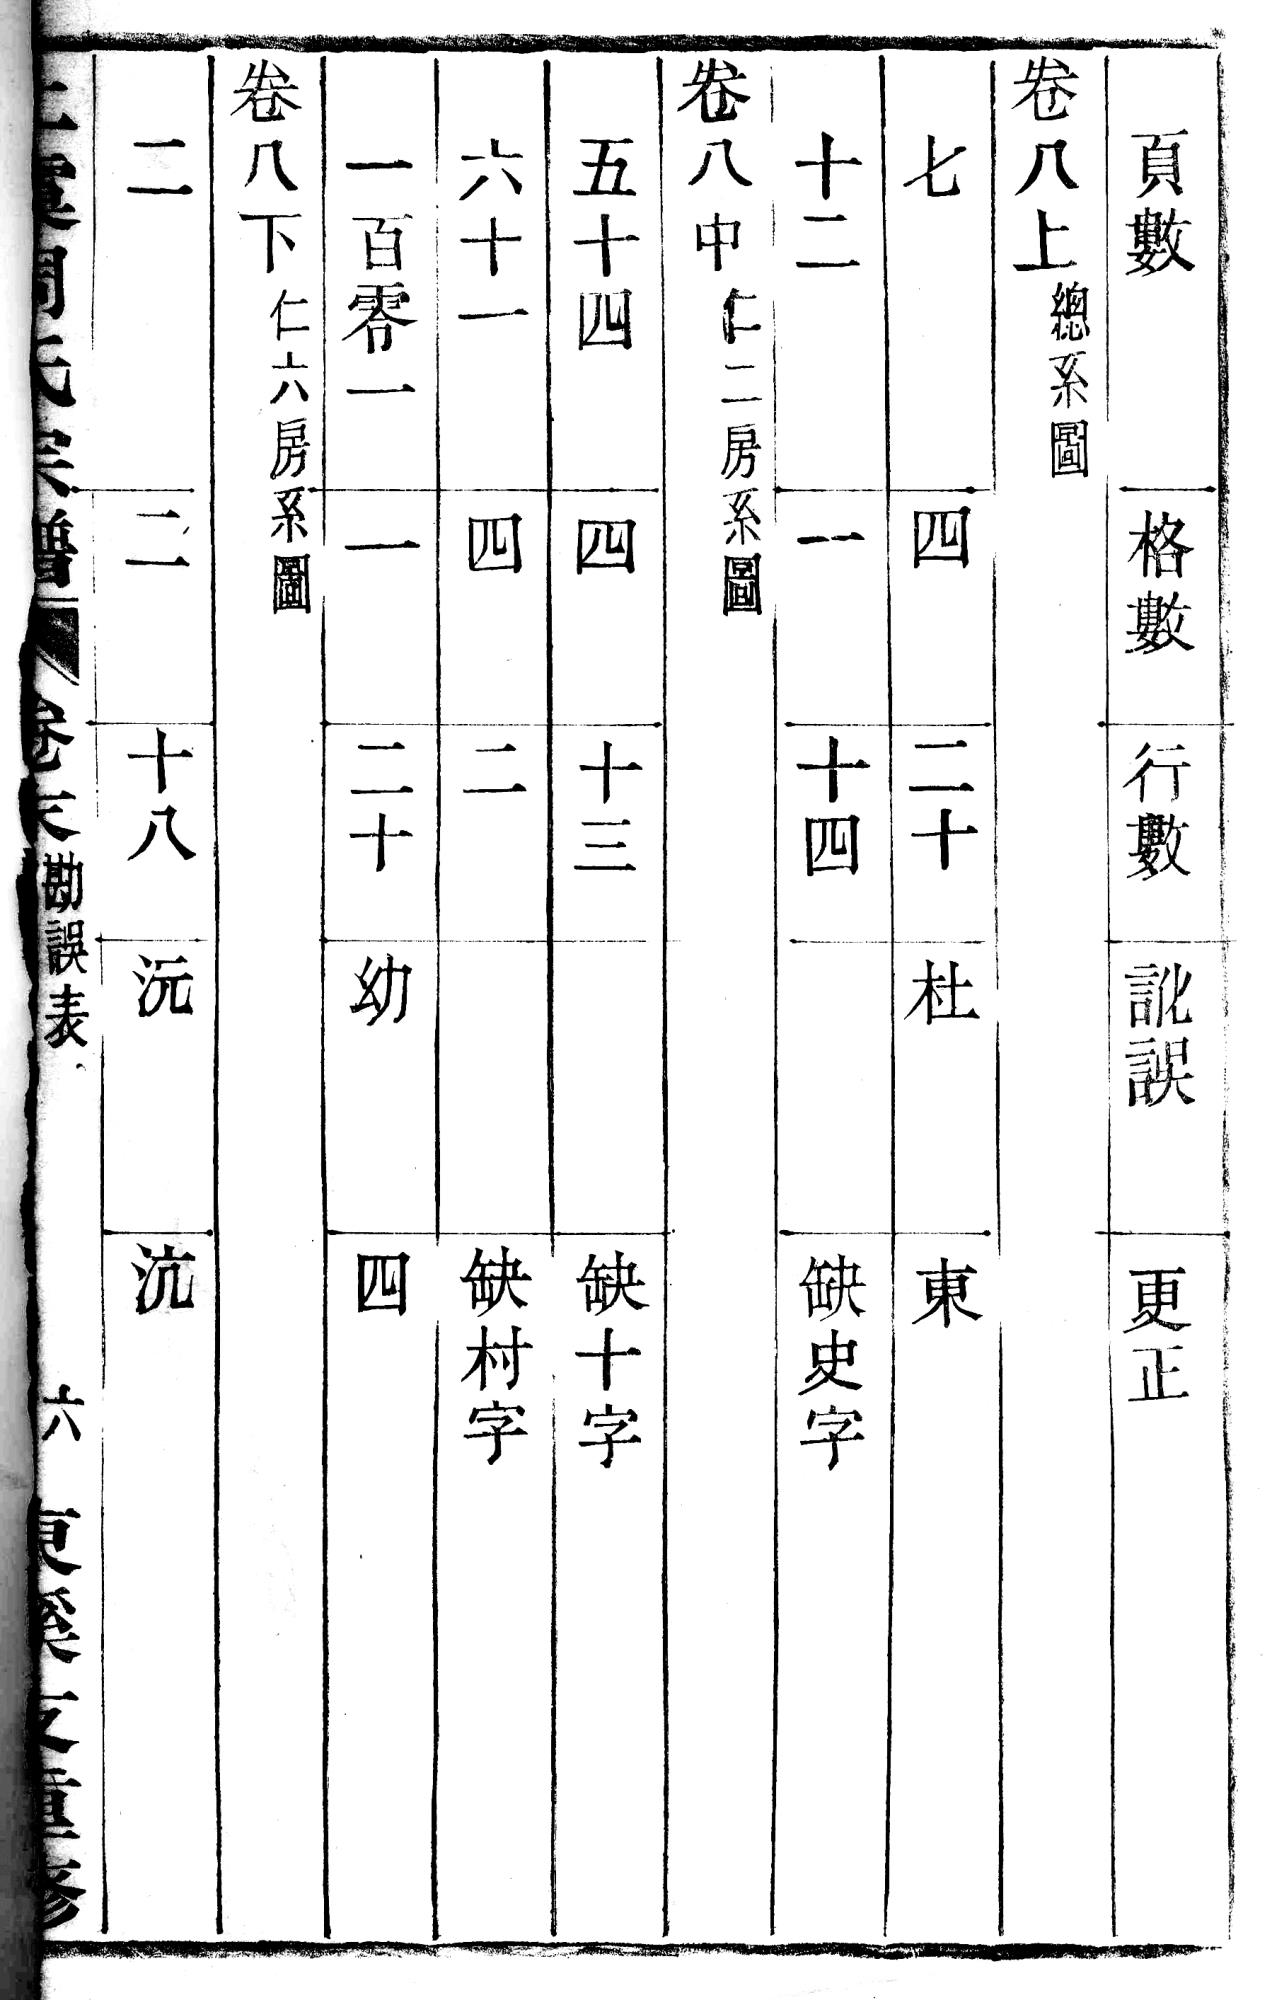 頁數 格數 行數 訛誤 更正
卷八上 總系圖
七 四 二十 杜 東
十二 一 十四 缺史字
卷八中 仁二房系圖
五十四 四 十三 缺十字
六十一 四 二 缺村字
一百零一 一 二十 幼 四
卷八下 仁六房系圖
二 二 十八 沅 沆
上虞周氏宗譜 卷末 勘誤表 六 重修